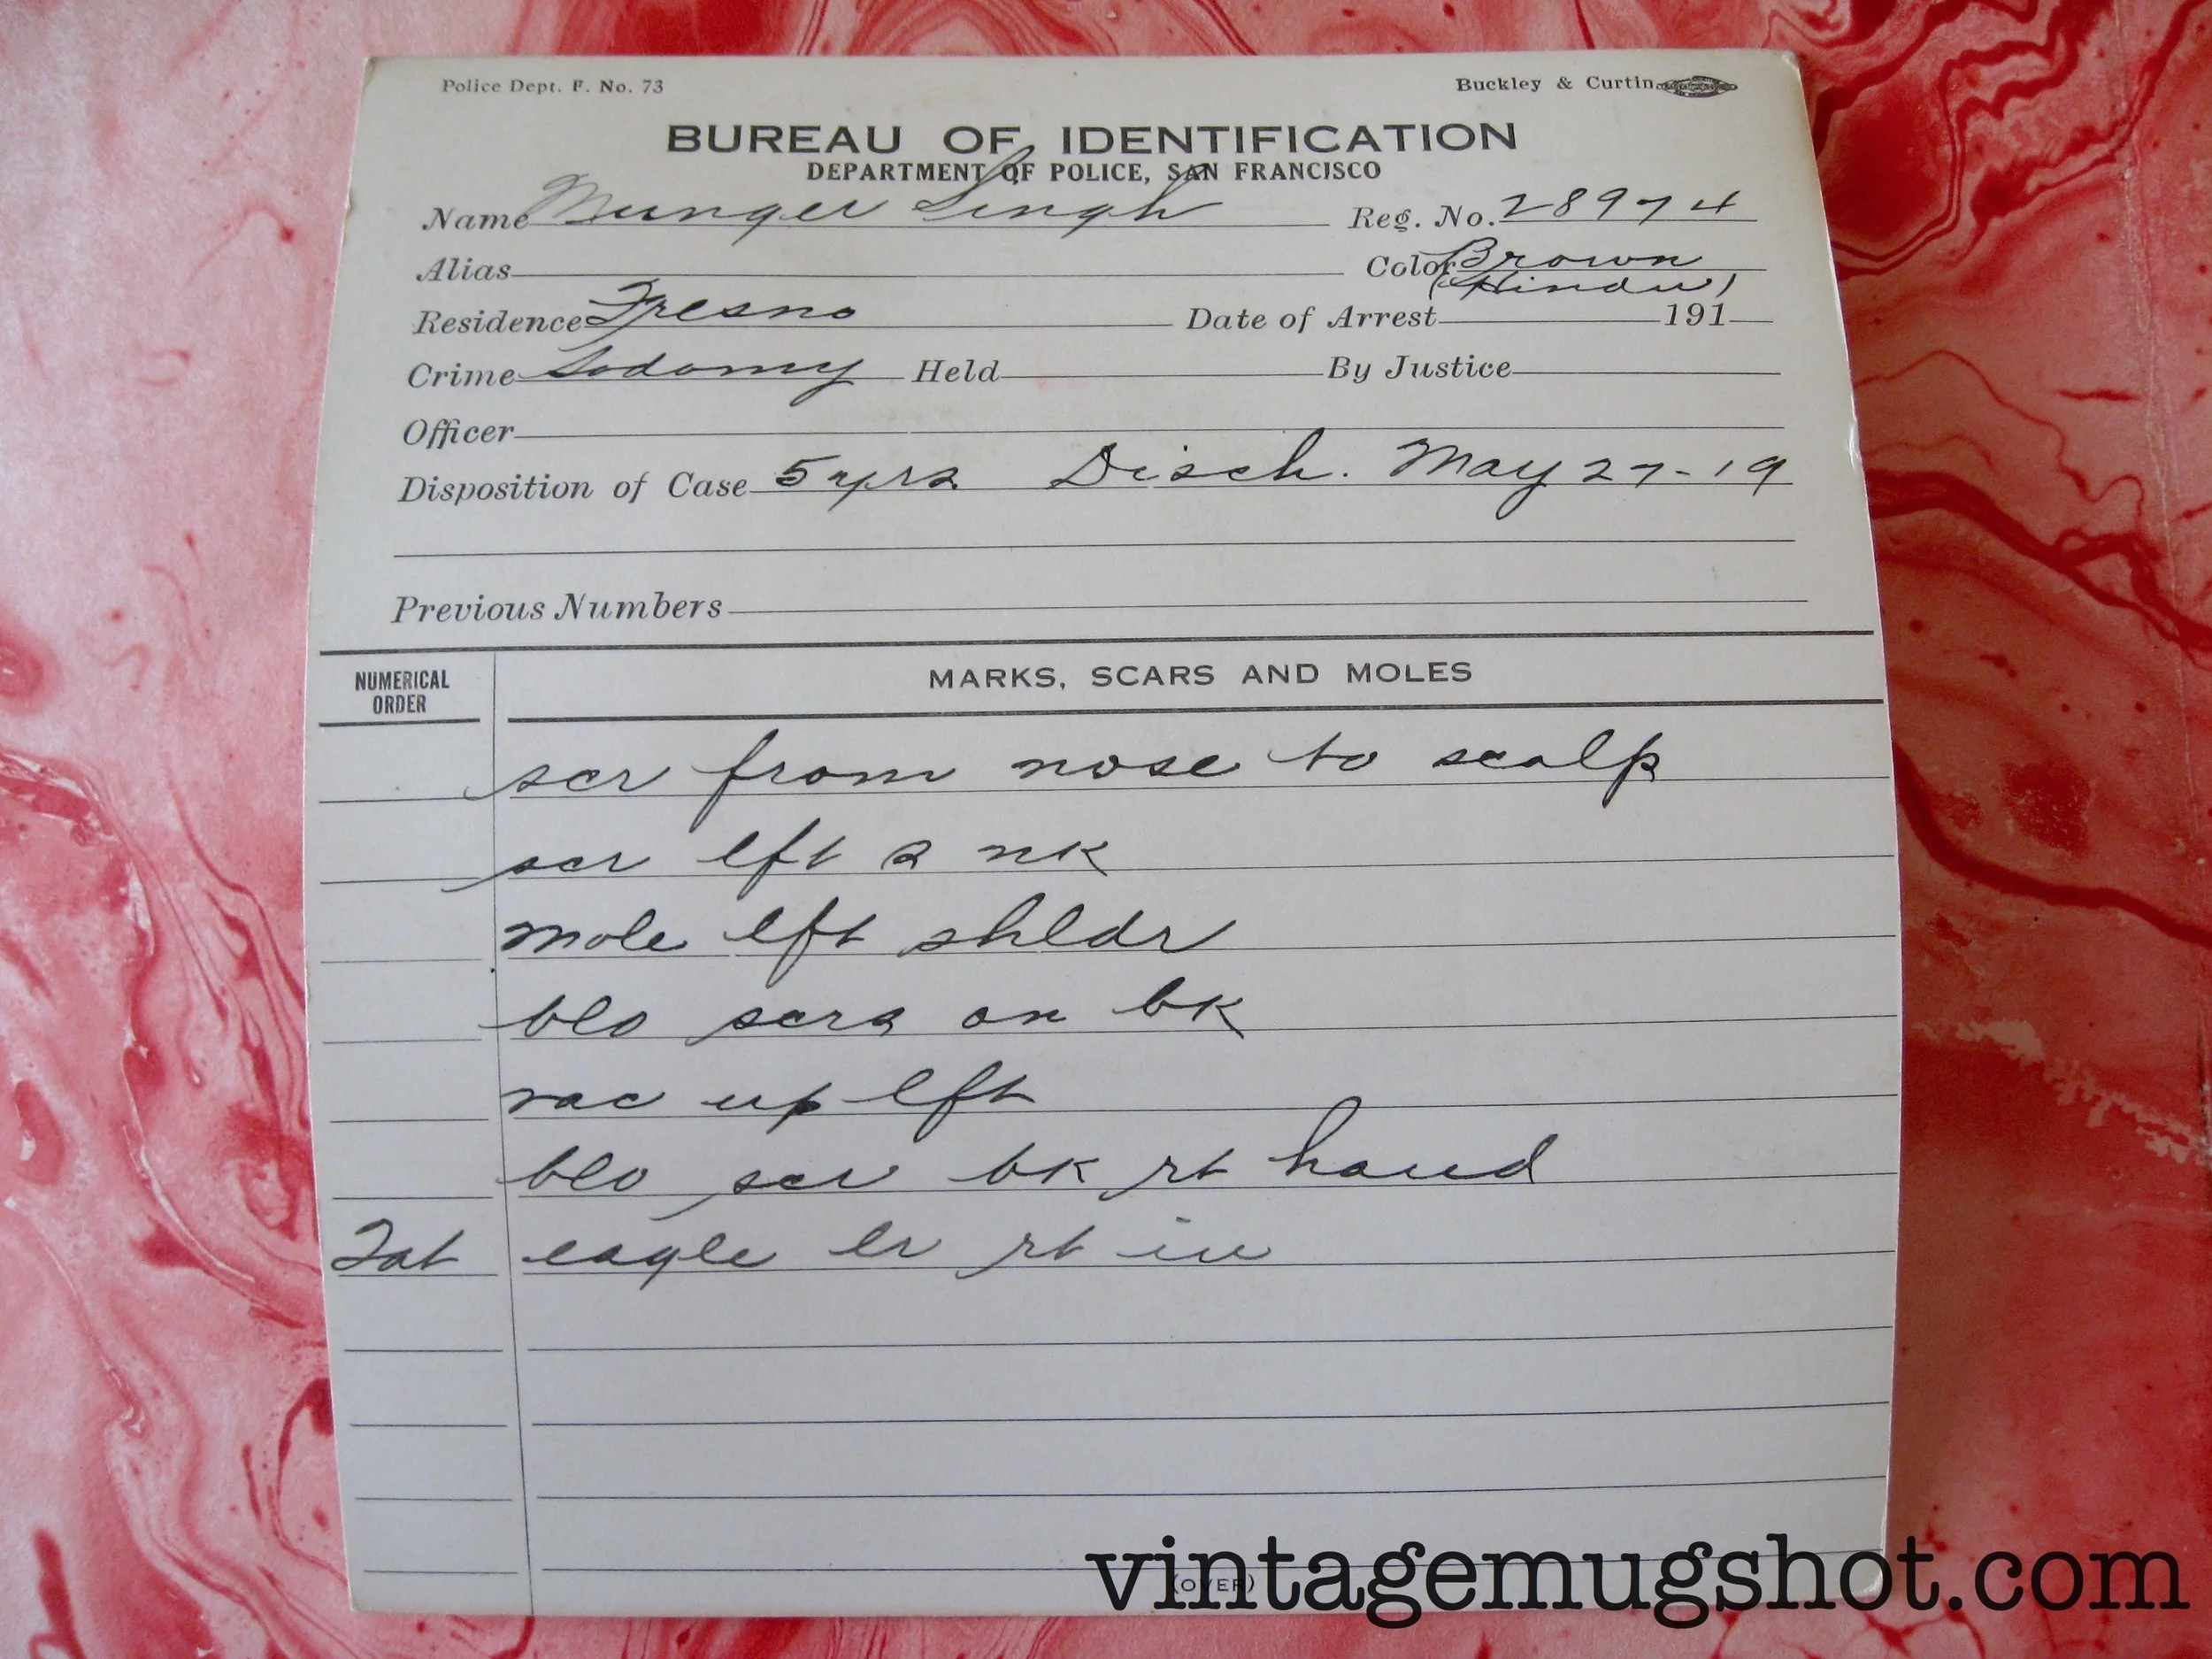 Police Dept. F. No. 73 Buckley & Curtin
BUREAU OF IDENTIFICATION
DEPARTMENT OF POLICE, SAN FRANCISCO
Name Munger Singh Reg. No. 28974
Alias Color Brown
(Hindu)
Residence Fresno Date of Arrest 191
Crime Sodomy Held By Justice
Officer
Disposition of Case 5 yrs. Disch. May 27-19
Previous Numbers
NUMERICAL ORDER MARKS, SCARS AND MOLES
scr from nose to scalp
scr lft s nk
mole lft shldr
blo scrs on bk
vac up lft
blo scr bk rt hand
Tat eagle lr rt in
(OVER)
vintagemugshot.com